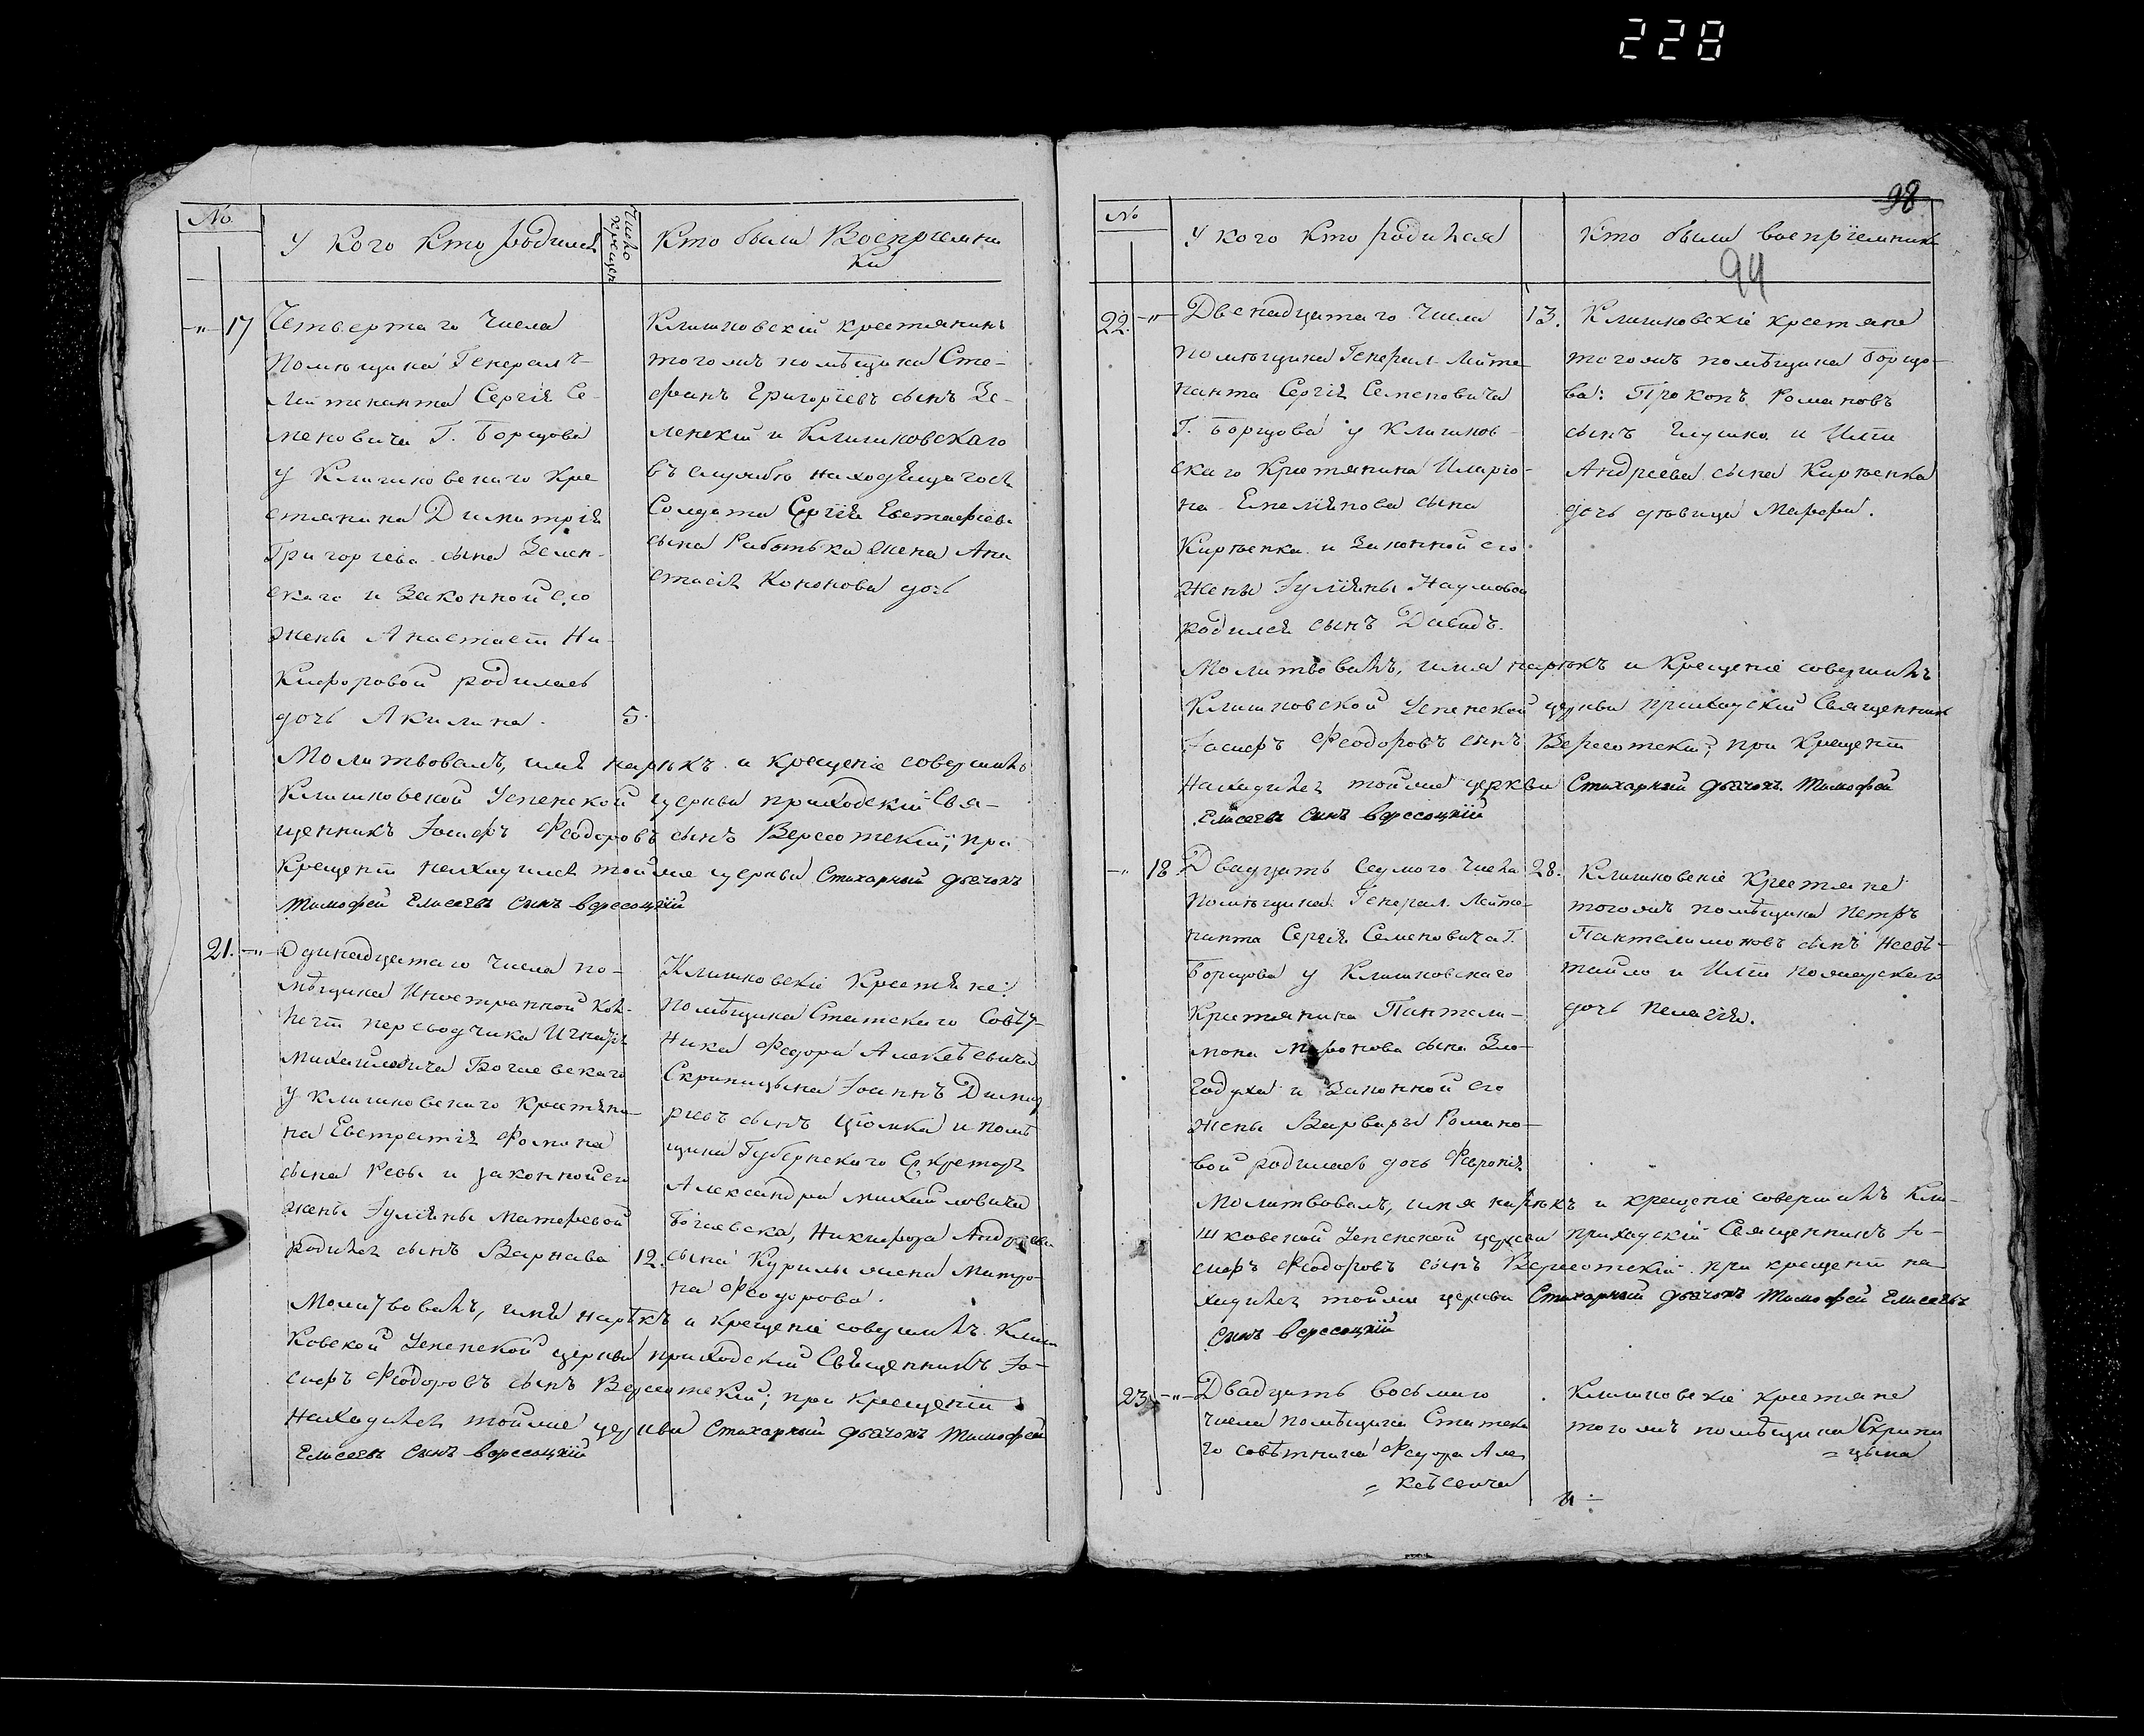 228
№
У кого Кто родился
Число Крещен
Кто были Воспріемни
ки
-"- 17
Четвертаго Числа
Помѣщика Генералъ
Лейтенанта Сергія Се-
меновича Г. Борщова
у Клишковскаго Кре
стянина Димитрія
Григоріева сына Зелен-
скаго и Законной его
жены Анастасіи Ни-
кифоровой родилась
дочь Акилина. 5.
Клишковскій крестянинъ
тогожъ помѣщика Сте-
фанъ Григоріевъ сынъ Зе-
ленскій и Клишковскаго
въ службѣ находящагося
Солдата Сергія Евстафіева
сына Работька жена Ана
стасія Кононова дочь
Молитвовалъ, имя нарѣкъ и крещеніе совершилъ
Клишковской Успенской церкви приходскій Свя-
щенникъ Іосифъ Феодоровъ сынъ Вересотскій; при
Крещеніи находился тойже церкви Стихарный дьячокъ
Тимофей Елисеевъ сынъ вересоцкій
21. -"-
Одинадцатаго Числа по-
мѣщика Иностранной Кол-
легіи переводчика Игнатія
Михайловича Богаевскаго
у Клишковскаго Крестяни-
на Евстратія Фомина
сына Ревы и законной его
жены Іуліяны Матфеевой
родился сынъ Варнава 12.
Клишковскіе Крестяне:
помѣщика Статскаго Совѣт-
ника Федора Алексѣевича
Скрипицына Іоаннъ Димит
ріевъ сынъ Цюмка и помѣ
щика Губернскаго Секретаря
Александра Михайловича
Богаевска, Никифора Андреева
сына Курилы жена Матро-
на Феодорова.
Молитвовалъ, имя нарѣкъ и Крещеніе совершилъ Клиш
ковской Успенской церкви приходскій Священникъ Іо-
сифъ Феодоровъ сынъ Вересотскій; при крещеніи
Находился тойже церкви Стихарный дьячокъ Тимофей
Елисеевъ сынъ вересоцкій
98
94
№
У кого Кто родился
Кто были воспріемники
22. -"-
Двенадцатаго Числа 13.
помѣщика Генерал-Лейте-
нанта Сергія Семеновича
Г. Борщова у Клишков-
скаго Крестянина Иларіо-
на Емеліянова сына
Кирѣенка и Законной его
жены Іуліяны Наумовой
родился сынъ Давидъ.
Клишковскіе крестяне
тогожъ помѣщика Борщо-
ва: Прокопъ Романовъ
сынъ Глушко и Иліи
Андреева сына Кирѣенка
дочь дѣвица Марфа.
Молитвовалъ, имя нарѣкъ и Крещеніе совершилъ
Клишковской Успенской церкви приходскій Священникъ
Іосифъ Феодоровъ сынъ Вересотскій; при Крещеніи
Находился тойже церкви Стихарный дьячокъ Тимофей
Елисеевъ сынъ вересоцкій
-"- 18
Двадцать седмого Числа 28.
помѣщика Генерал. Лейте-
нанта Сергія Семеновича Г.
Борщова у Клишковскаго
Крестянина Пантели-
мона Миронова сына Зло-
годуха и Законной его
жены Варвары Романо-
вой родилась дочь Февронія
Клишковскіе Крестяне
тогожъ помѣщика Петръ
Пантелимоновъ сынъ
и Иліи
дочь Пелагія.
Молитвовалъ, имя нарѣкъ и крещеніе совершилъ Кли-
шковской Успенской церкви приходскій Священникъ Іо-
сифъ Феодоровъ сынъ Вересотскій при крещеніи на
ходился тойже церкви Стихарный дьячокъ Тимофей Елисеевъ
сынъ вересоцкій
23. -"-
Двадцать восьмаго
числа помѣщика Статска
го совѣтника Федора Але
= ксѣевича
Клишковскіе крестяне
тогожъ помѣщика Скрипи
= цына